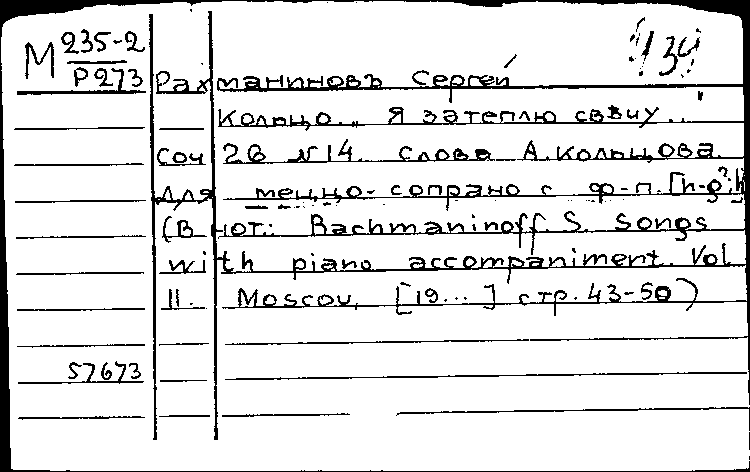 М 235-2
Р273
139
Рахманиновъ Сергей
Кольцо... Я затеплю свѣчу...
Соч 26 №14. Слова А. Кольцова.
Для меццо-сопрано с ф-п. [h-g²;
(В нот.: Rachmaninoff. S. Songs
with piano accompaniment. Vol
II. Moscou, [19...] стр. 43-50)
57673